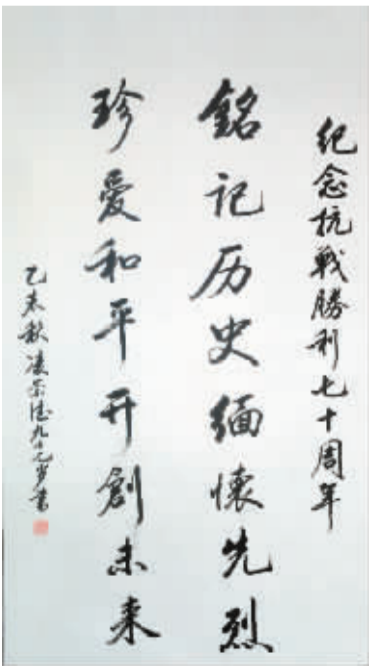 纪念抗戰勝利七十周年
銘记历史缅懷先烈
珍爱和平开創未来
乙未秋凌宗德九十九岁書